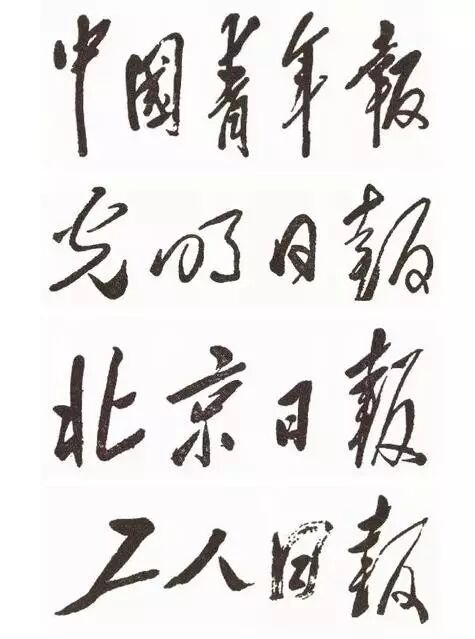 中國青年報
光明日報
北京日報
工人日報